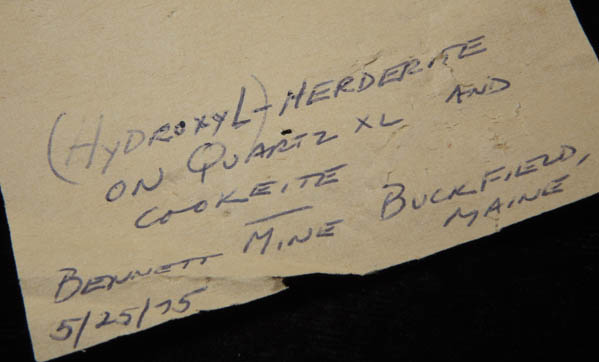 (HYDROXYL)-HERDERITE
ON QUARTZ XL AND
COOKEITE
BENNETT MINE BUCKFIELD,
MAINE,
5/25/75